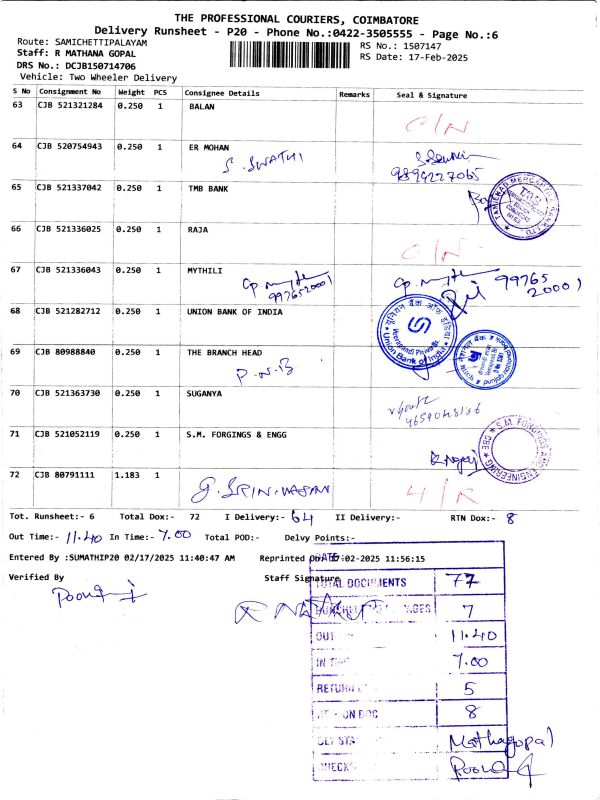 THE PROFESSIONAL COURIERS, COIMBATORE
Delivery Runsheet - P20 - Phone No.:0422-3505555 - Page No.:6
Route: SAMICHETTIPALAYAM
RS No.: 1507147
Staff: R MATHANA GOPAL
RS Date: 17-Feb-2025
DRS No.: DCJB150714706
Vehicle: Two Wheeler Delivery
S No Consignment No Weight PCS Consignee Details Remarks Seal & Signature
63 CJB 521321284 0.250 1 BALAN
64 CJB 520754943 0.250 1 ER MOHAN
S. SWATHI
9894227065
65 CJB 521337042 0.250 1 TMB BANK
66 CJB 521336025 0.250 1 RAJA
67 CJB 521336043 0.250 1 MYTHILI
9976520001
99765
20001
68 CJB 521282712 0.250 1 UNION BANK OF INDIA
Union Bank of India
69 CJB 80988840 0.250 1 THE BRANCH HEAD
P.N.B
punjab national bank
70 CJB 521363730 0.250 1 SUGANYA
71 CJB 521052119 0.250 1 S.M. FORGINGS & ENGG
S.M. FORGINGS AND ENGINEERING CBE
72 CJB 80791111 1.183 1
G. SRINIVASAN
Tot. Runsheet:- 6 Total Dox:- 72 I Delivery:- 64 II Delivery:- RTN Dox:- 8
Out Time:- 11.40 In Time:- 7.00 Total POD:- Delvy Points:-
Entered By :SUMATHIP20 02/17/2025 11:40:47 AM Reprinted On:-17-02-2025 11:56:15
Verified By Staff Signature
DATE
TOTAL DOCUMENTS 77
7
OUT 11.40
IN TIME 7.00
RETURN 5
DOC 8
Mathagopal